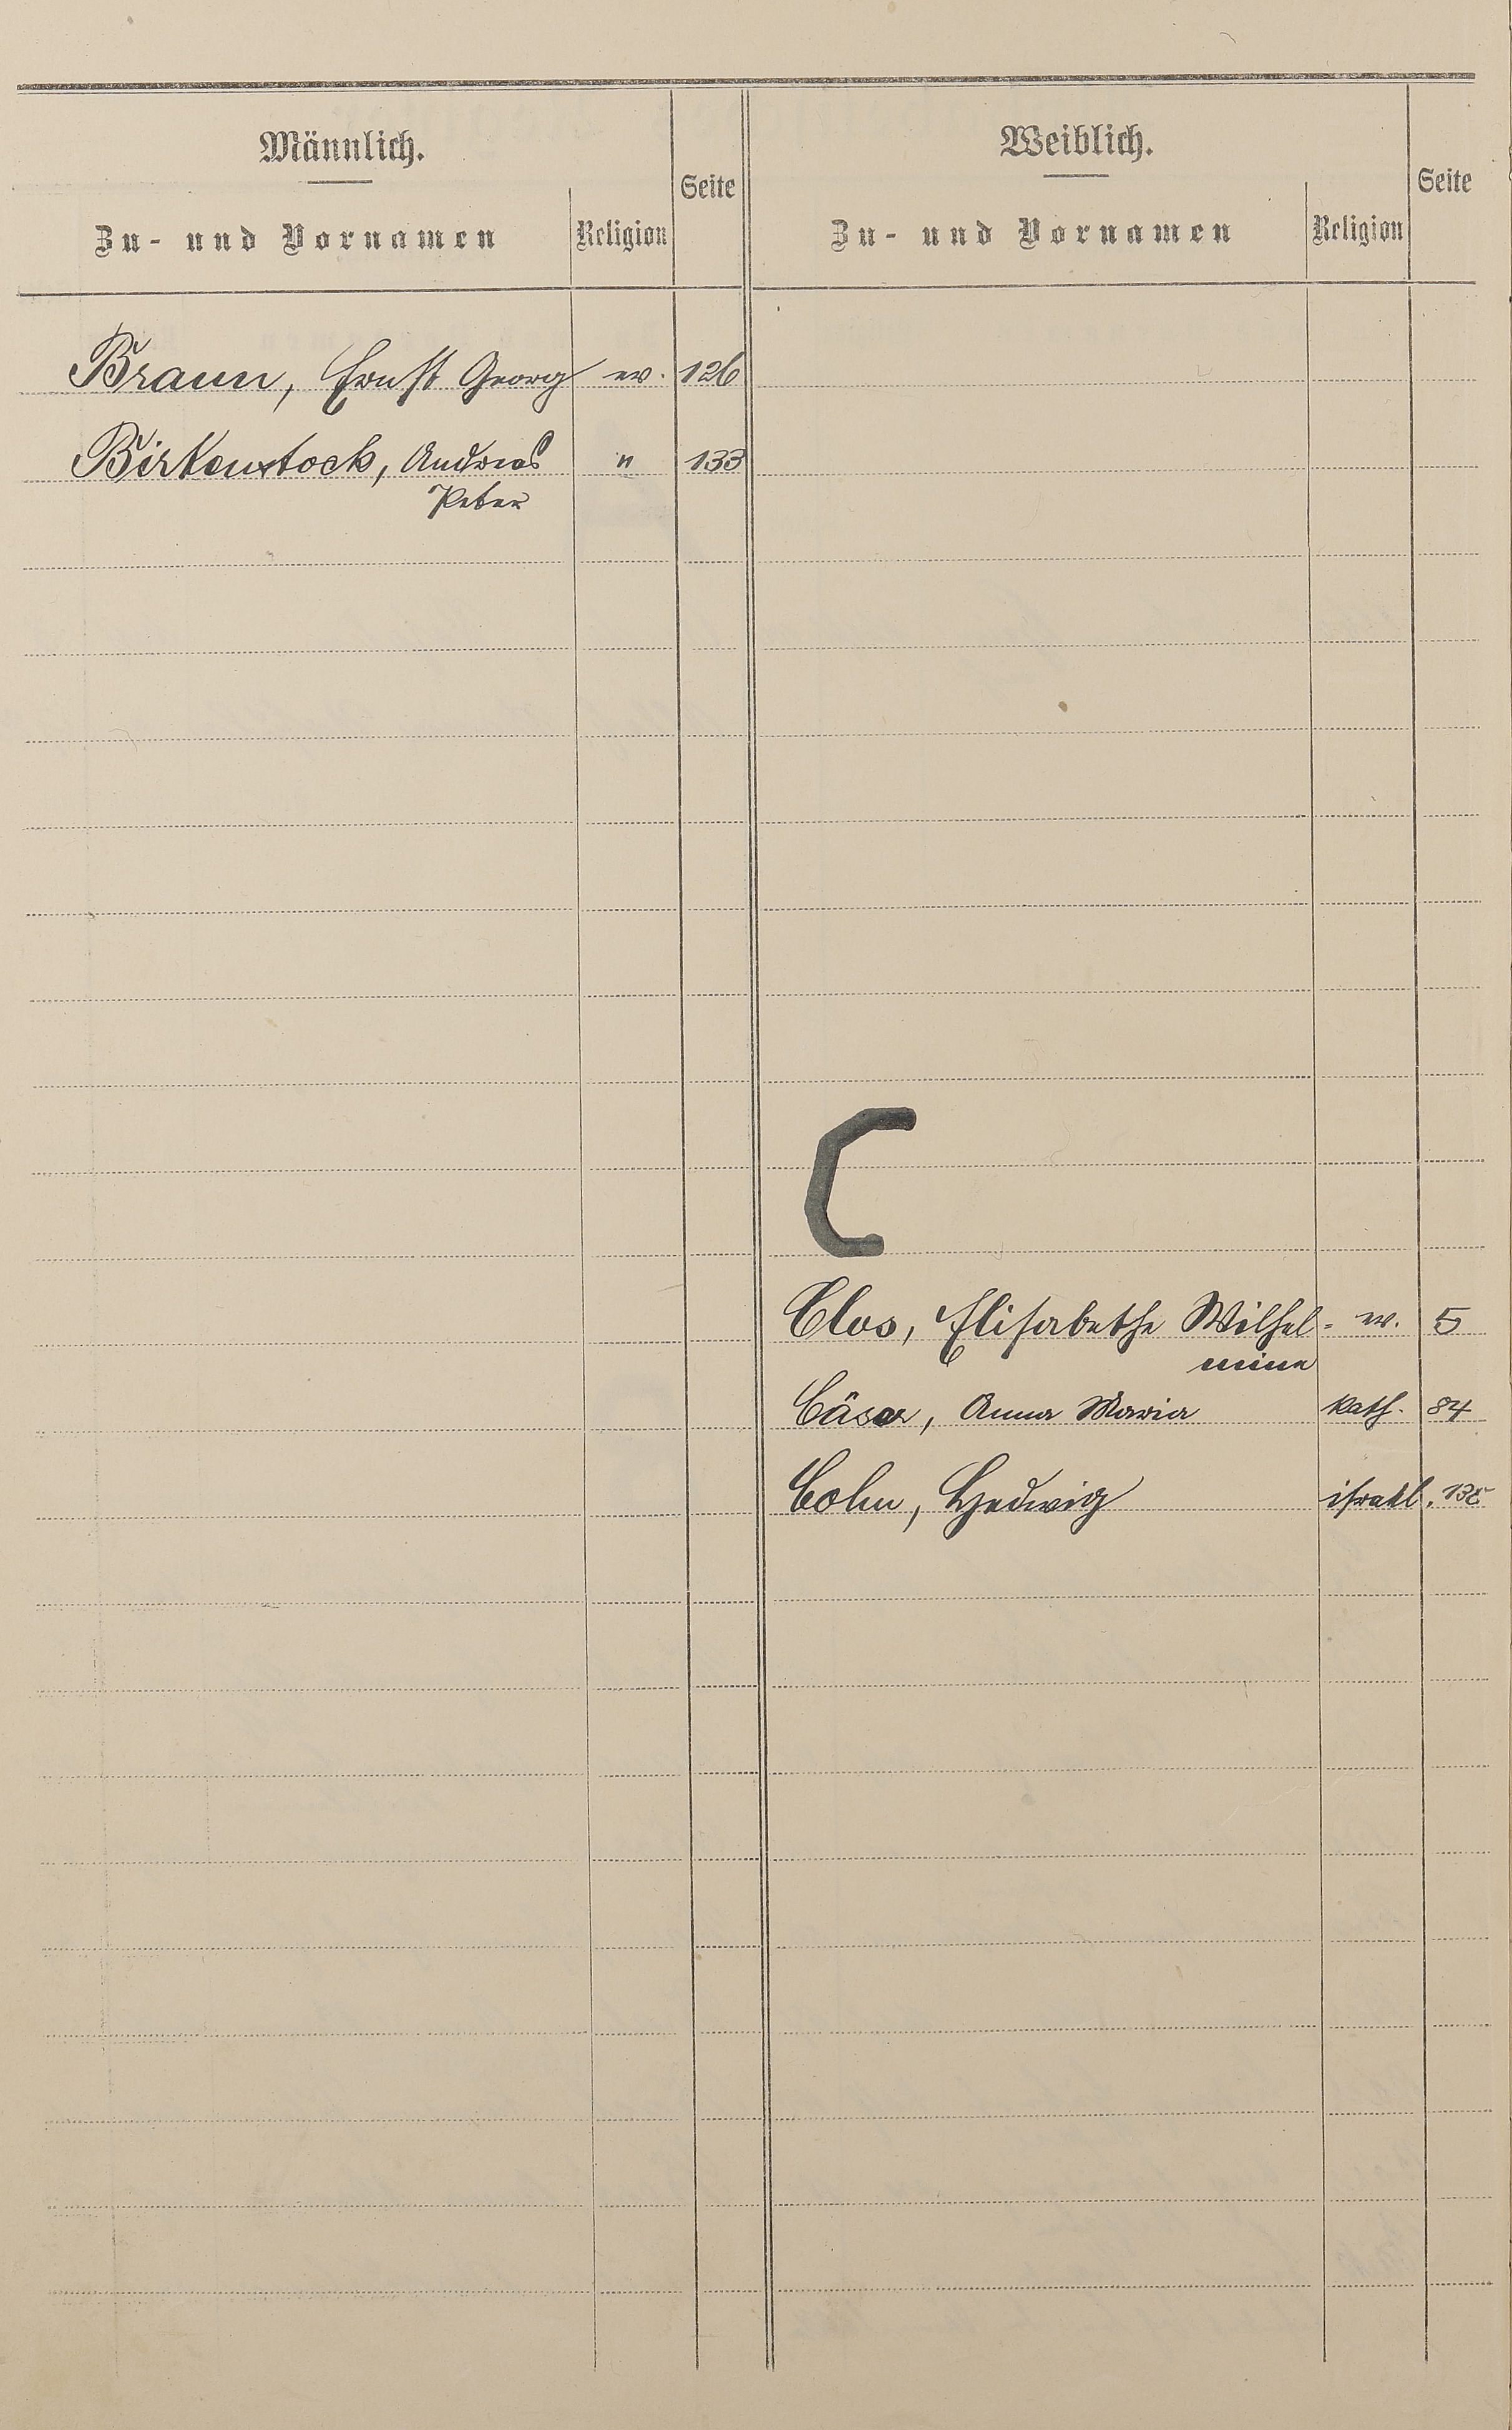 Männlich.
Zu- und Vornamen Religion Seite
Braun, Ernst Georg ev. 126
Birkenstock, Andreas " 133
Peter
Weiblich.
Zu- und Vornamen Religion Seite
C
Clos, Elisabethe Wilhel- ev. 5
mine
Cäsar, Anna Maria kath. 84
Cohn, Hedwig israel.